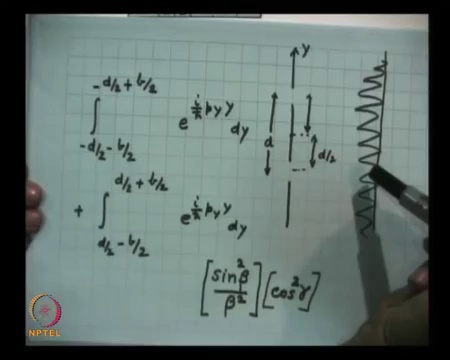 -d/2 + b/2
∫ e^{(i/ħ) p_y y} dy
-d/2 - b/2
d/2 + b/2
+ ∫ e^{(i/ħ) p_y y} dy
d/2 - b/2
y
d
d/2
[sin²β/β²][cos²γ]
NPTEL